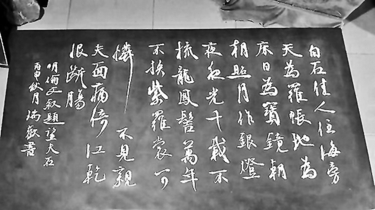 白石佳人住海旁
天為羅帳地為
床日為寶鏡朝
相照月作銀燈
夜夜光千載不
梳龍鳳髻萬年
不換紫羅裳可
憐不見親
夫面痛倚江乾
恨斷腸
明倫文叙題望夫石
丙申秋月書